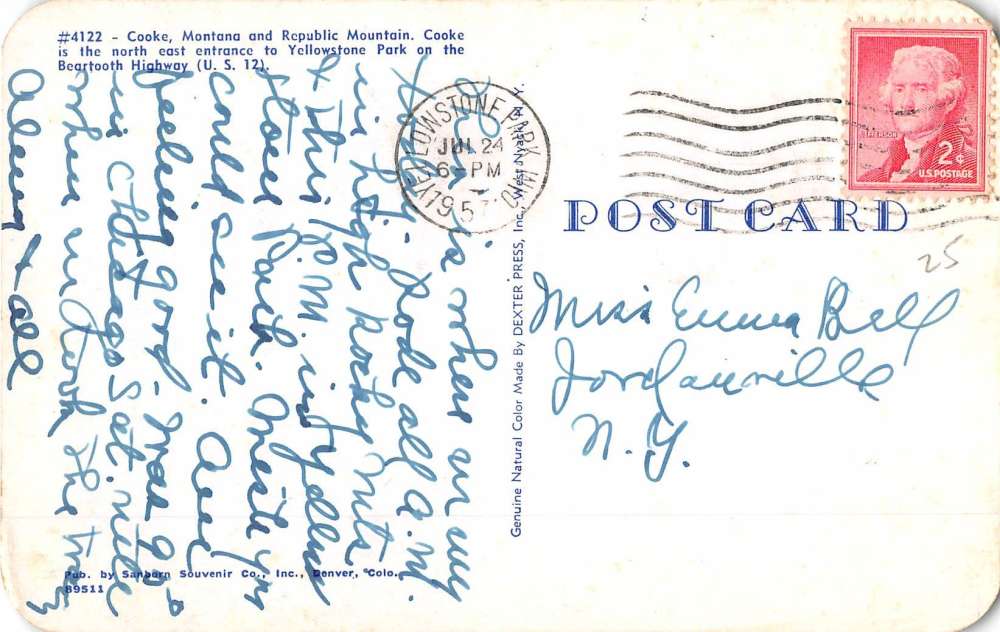 #4122 - Cooke, Montana and Republic Mountain. Cooke
is the north east entrance to Yellowstone Park on the
Beartooth Highway (U. S. 12).
is where we are
today - Rode all A.M.
in high Rocky Mts
& this P.M. in Yellow
stone Park. Wish you
could see it. Are
feeling good - was 90°
in Chicago Sat. nite
when we took the train
& all
Pub. by Sanborn Souvenir Co., Inc., Denver, Colo.
89511
Genuine Natural Color Made By DEXTER PRESS, Inc., West Nyack, N. Y.
YELLOWSTONE PARK WYO.
JUL 24
6 - PM
1957
JEFFERSON
2¢
U.S. POSTAGE
POST CARD
25
Miss Emma Bell
Jordanville
N. Y.